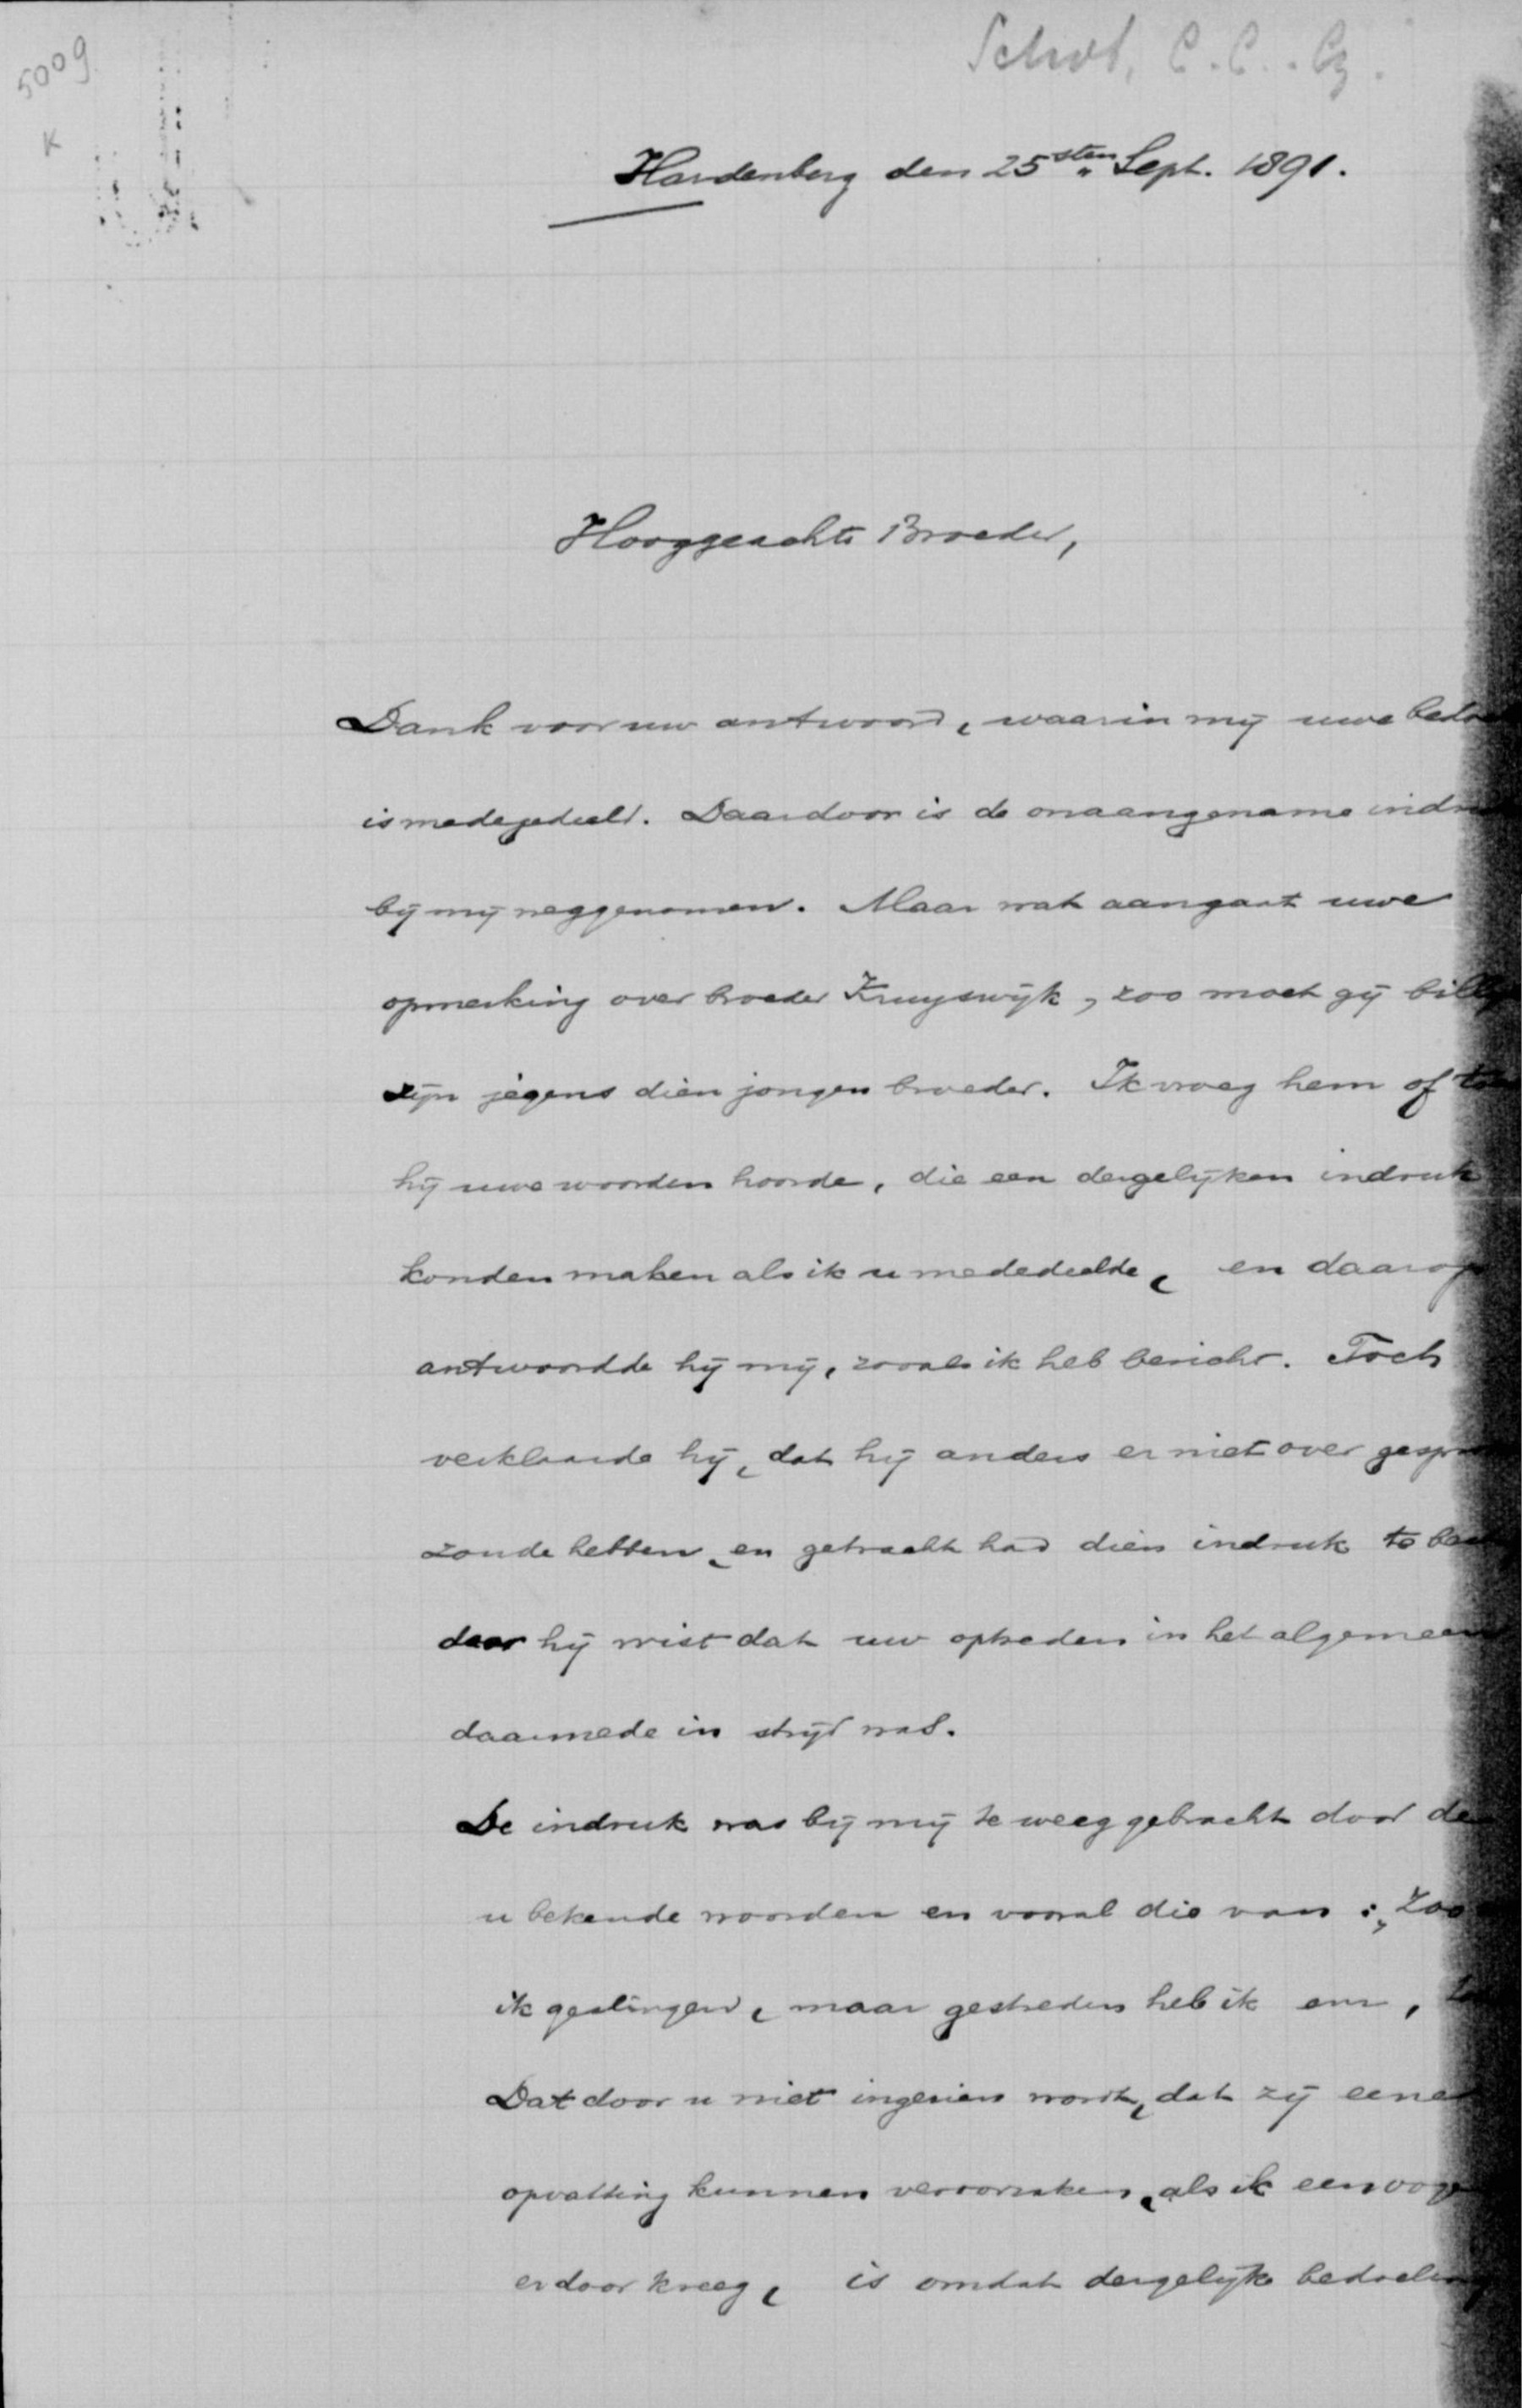 5009
K
Schot, C. C. Cz.
Hardenberg den 25sten Sept. 1891.
Hooggeachte Broeder,
Dank voor uw antwoord, waarin mij uwe
is medegedeeld. Daardoor is de onaangename
bij mij weggenomen. Maar wat aangaat uwe
opmerking over broeder Kruyswijk, zoo moet gij
zijn jegens dien jongen broeder. Ik vroeg hem of
hij uwe woorden hoorde, die een dergelijken indruk
konden maken als ik u mededeelde, en daarop
antwoordde hij mij, zooals ik heb bericht. Toch
verklaarde hij, dat hij anders er niet over
zoude hebben, en getracht had dien indruk te
daar hij wist dat uw optreden in het algemeen
daarmede in strijd was.
De indruk was bij mij te weeg gebracht door de
u bekende woorden en vooral die van: „Zoo
ik geslingerd, maar gestreden heb ik
Dat door u niet ingezien wordt, dat zij eene
opvatting kunnen veroorzaken, als ik
er door kreeg, is omdat dergelijke